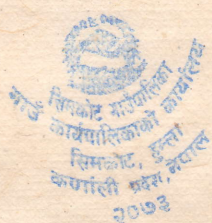 सिमकोट गाउँपालिका
गाउँ कार्यपालिकाको कार्यालय
सिमकोट, हुम्ला
कर्णाली प्रदेश, नेपाल
२०७३